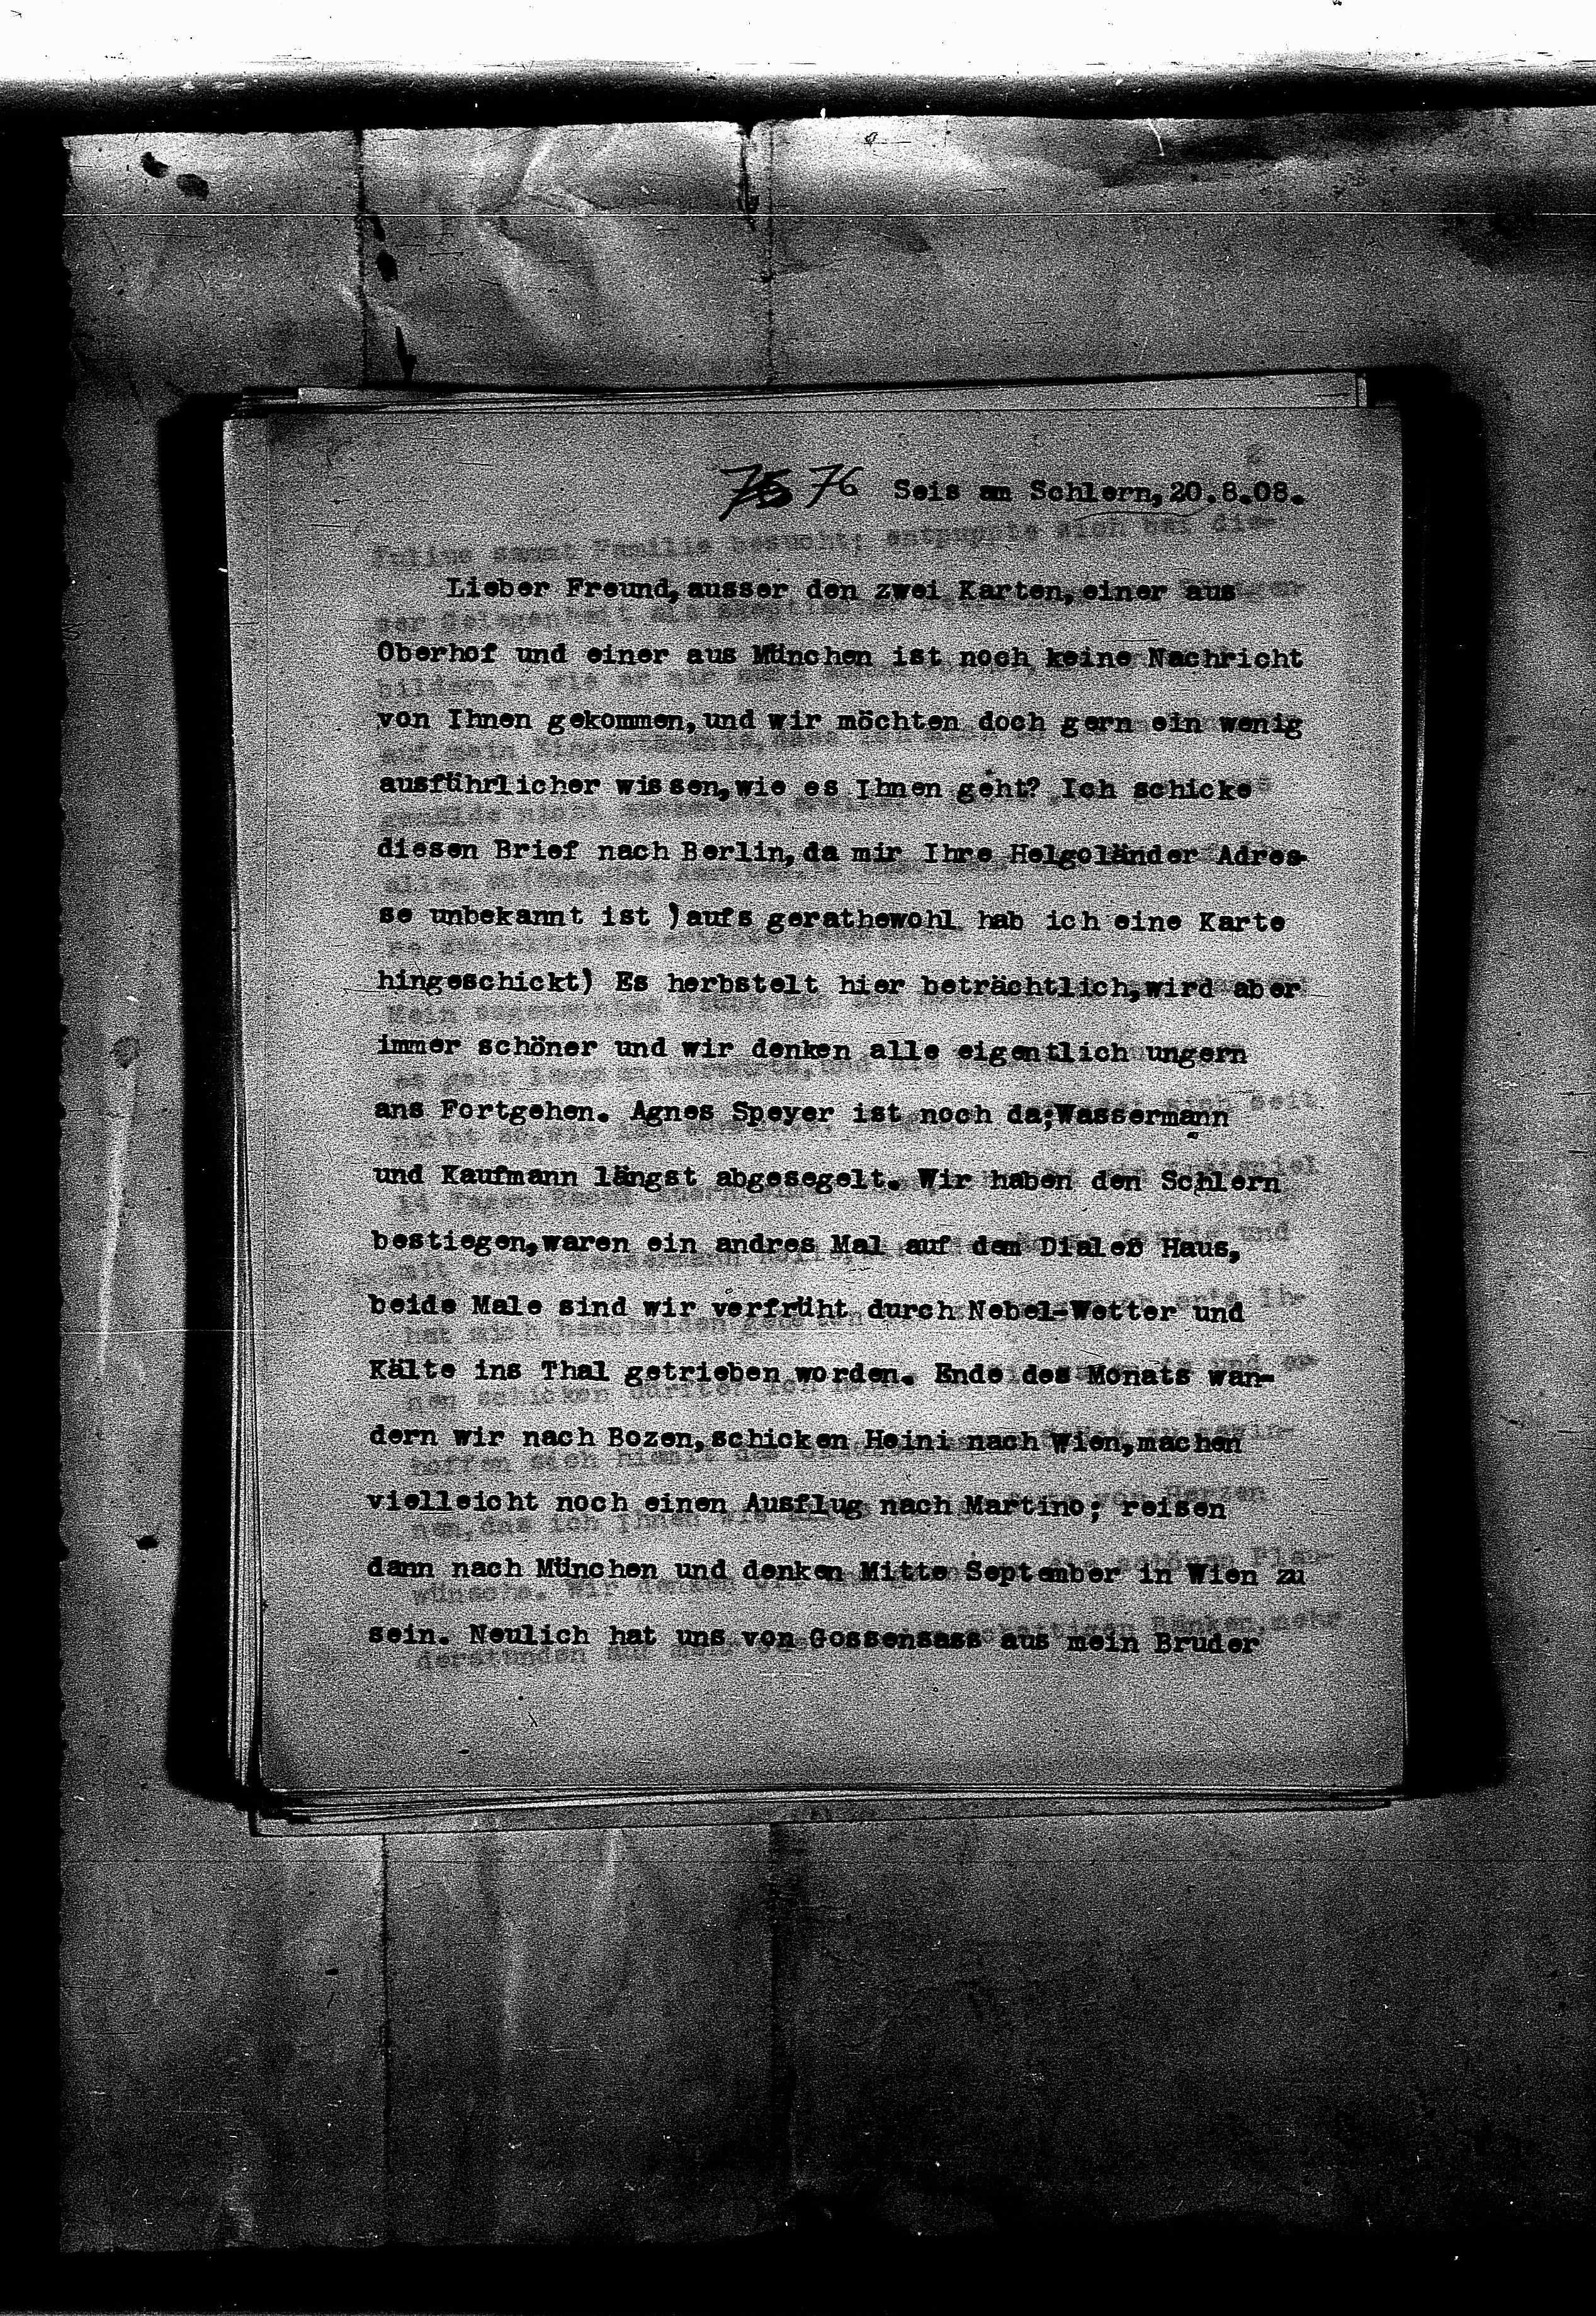 76 Seis am Schlern,20.8.08.
Lieber Freund,ausser den zwei Karten,einer aus
Oberhof und einer aus München ist noch keine Nachricht
von Ihnen gekommen,und wir möchten doch gern ein wenig
ausführlicher wissen,wie es Ihnen geht? Ich schicke
diesen Brief nach Berlin,da mir Ihre Helgoländer Adres-
se unbekannt ist )aufs gerathewohl hab ich eine Karte
hingeschickt) Es herbstelt hier beträchtlich,wird aber
immer schöner und wir denken alle eigentlich ungern
ans Fortgehen. Agnes Speyer ist noch da;Wassermann
und Kaufmann längst abgesegelt. Wir haben den Schlern
bestiegen,waren ein andres Mal auf dem Dialer Haus,
beide Male sind wir verfrüht durch Nebel-Wetter und
Kälte ins Thal getrieben worden. Ende des Monats wan-
dern wir nach Bozen,schicken Heini nach Wien,machen
vielleicht noch einen Ausflug nach Martino; reisen
dann nach München und denken Mitte September in Wien zu
sein. Neulich hat uns von Gossensass aus mein Bruder